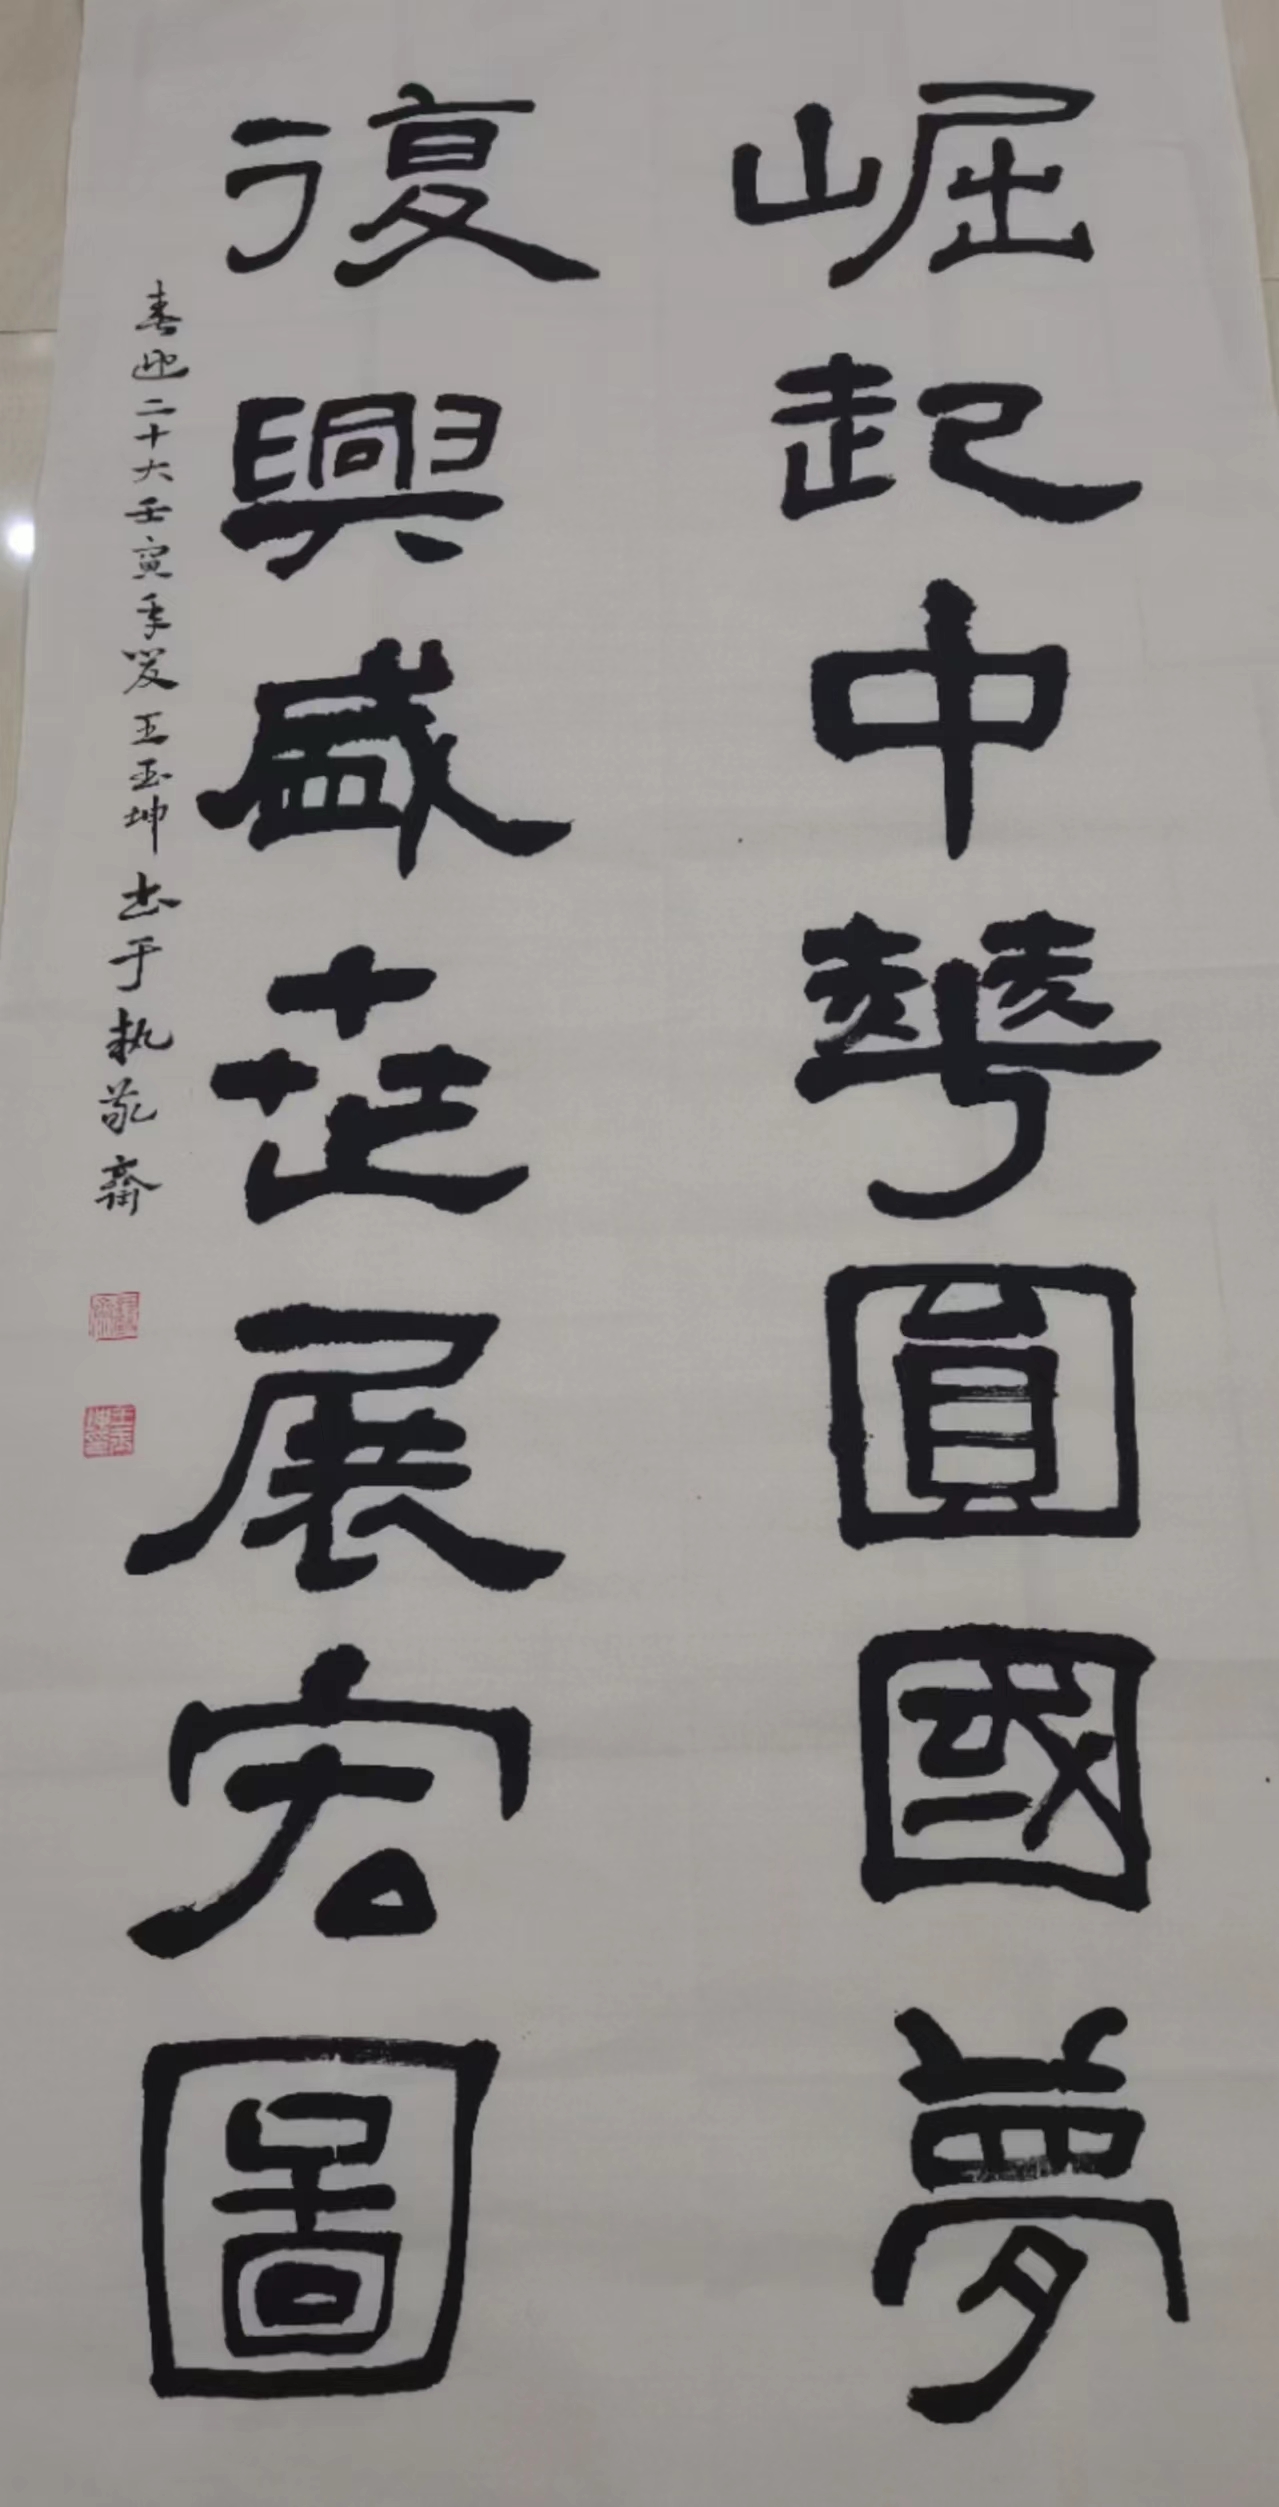 崛起中華圓國夢
復興盛世展宏圖
喜迎二十大壬寅年夏王玉坤书于执敬齋